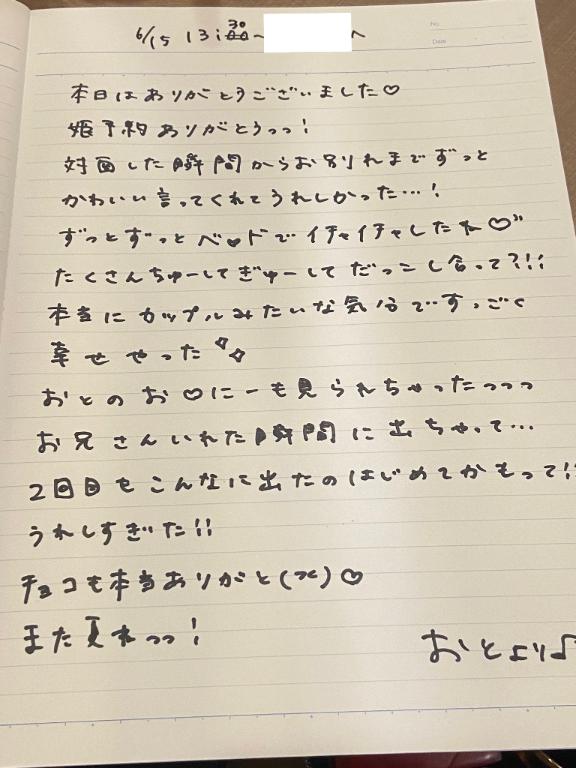 No.
Date
6/15 13:30~ へ
本日はありがとうございました♡
姫予約ありがとうっっ!
対面した瞬間からお別れまでずっと
かわいい言ってくれてうれしかった…!
ずっとずっとベ♥ドでイチャイチャしたね♡”
たくさんちゅーしてぎゅーしてだっこし合って?!!
本当にカップルみたいな気分ですっごく
幸せやった
おとのお♡にーも見られちゃったっっっ
お兄さんいれた瞬間に出ちゃって…
2回目もこんなに出たのはじめてかもって!!
うれしすぎた!!
チョコも本当ありがと(;;)♡
また夏ねっっ!
おとより♪